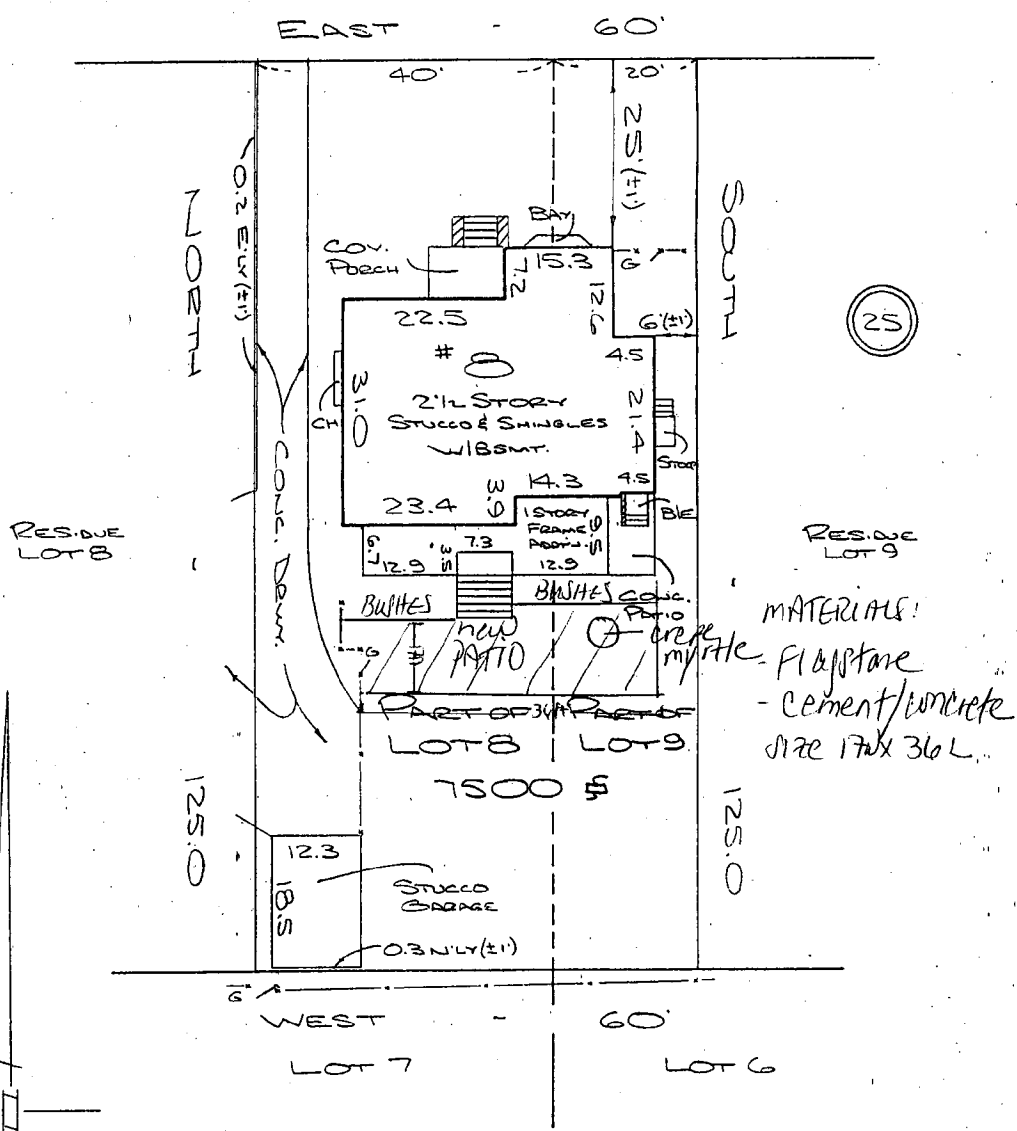 EAST - 60'
40'
20'
25'(±1')
NORTH
0.2 E'LY(±1')
SOUTH
BAY
COV.
PORCH
15.3
7.2
12.6
G
6'(±1')
25
22.5
4.5
#
31.0
CH
2 1/2 STORY
STUCCO & SHINGLES
W/BSMT.
21.4
STOOP
14.3
4.5
3.9
23.4
B/E
1 STORY
FRAME
ADD'N.
9.5
6.7
12.9
3.5
7.3
12.9
CONC. DRWY.
RESIDUE
LOT 8
RESIDUE
LOT 9
BUSHES
BUSHES
CONC.
PATIO
new
PATIO
crepe
myrtle
G
MATERIALS:
- Flagstone
- cement/concrete
size 17W X 36 L
PART OF
LOT 8
PART OF
LOT 9
7500
125.0
125.0
12.3
18.5
STUCCO
GARAGE
0.3 N'LY(±1')
G
WEST - 60'
LOT 7
LOT 6